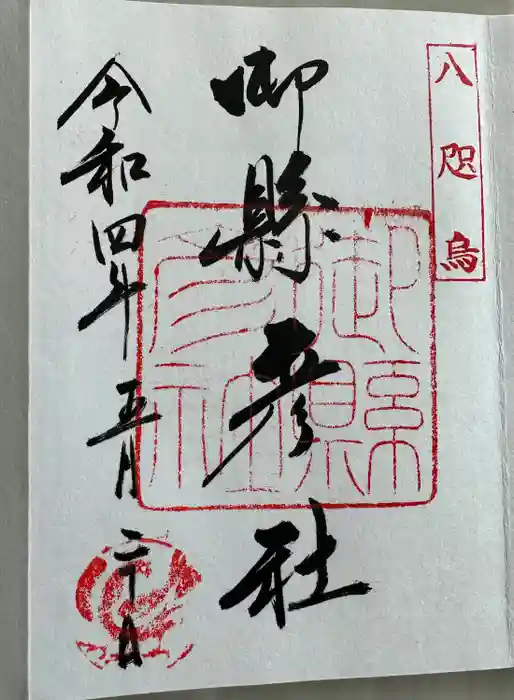 八咫烏
御縣彦社
令和四年五月二十日
御縣彦社